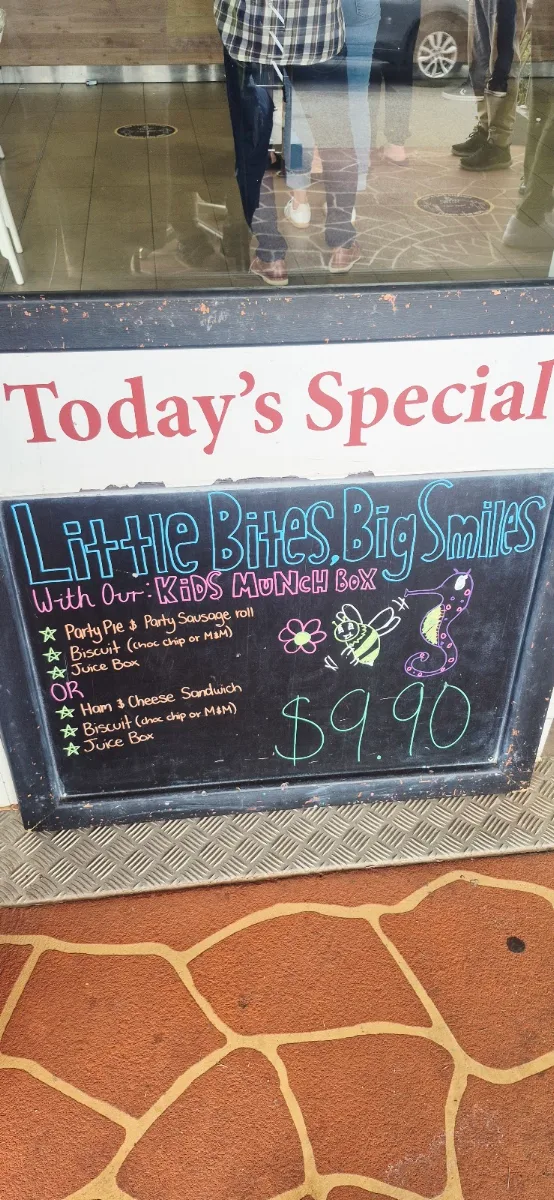 Today's Special
Little Bites, Big Smiles
With Our: KiDS MUNCH BOX
Party Pie & Party Sausage roll
Biscuit (choc chip or M&M)
Juice Box
OR
Ham & Cheese Sandwich
Biscuit (choc chip or M&M)
Juice Box
$9.90